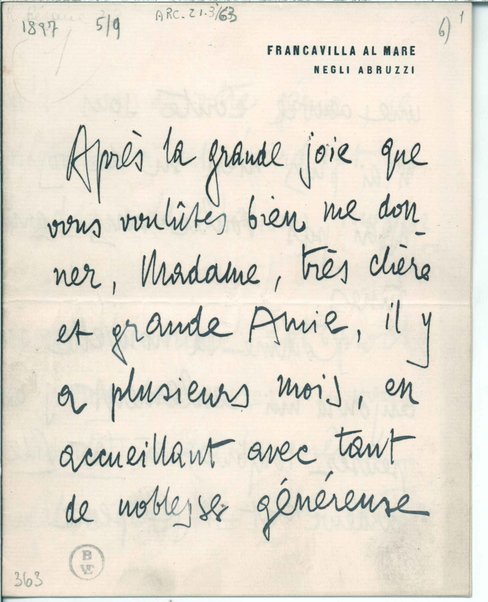 1897 5/9 ARC. 21.3/63 6) 1
FRANCAVILLA AL MARE
NEGLI ABRUZZI
Après la grande joie que
vous voulûtes bien me don
ner, Madame, très chère
et grande Amie, il y
a plusieurs mois, en
accueillant avec tant
de noblesse généreuse
B
VE
363